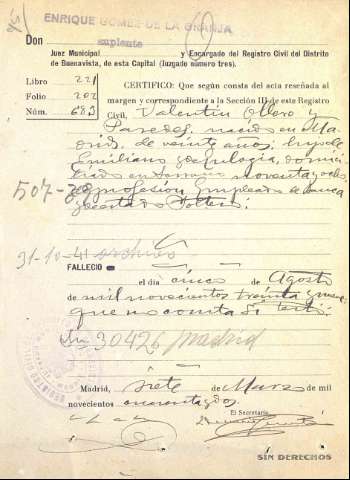 ENRIQUE GOMEZ DE LA GRANJA
Don
suplente
Juez Municipal y Encargado del Registro Civil del Distrito
de Buenavista, de esta Capital (Juzgado número tres).
Libro 221
Folio 202
Núm. 683
CERTIFICO: Que según consta del acta reseñada al
margen y correspondiente a la Sección III de este Registro
Civil, Valentín Ollero y
Paredes, nacido en Ma
drid, de veinte años, hijo de
Emiliano y de Eulogia, domici
liado en Serrano noventa y ocho
de profesión Empleado de banca
y de estado Soltero.
31-10-41 archivo
FALLECIÓ
el día cinco de Agosto
de mil novecientos treinta y
que no consta si testó.
30426 Madrid
Madrid, siete de Marzo de mil
novecientos cuarenta y dos.
El Secretario,
SIN DERECHOS